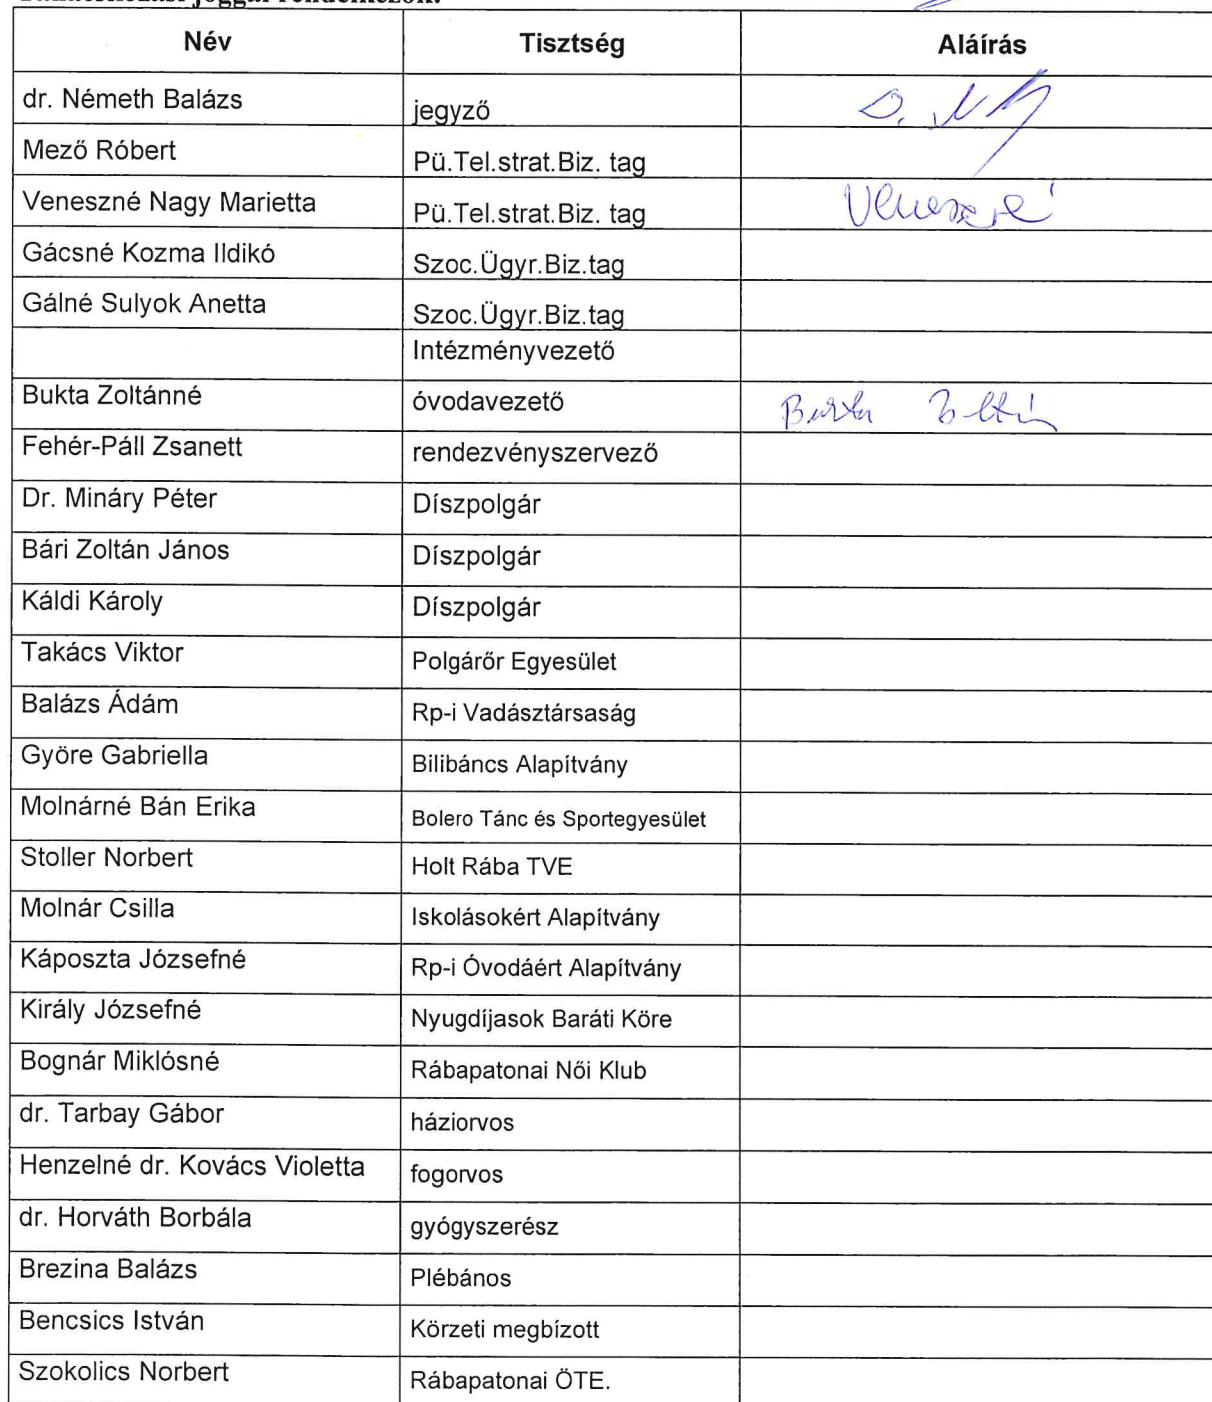 Név Tisztség Aláírás
dr. Németh Balázs jegyző
Mező Róbert Pü.Tel.strat.Biz. tag
Veneszné Nagy Marietta Pü.Tel.strat.Biz. tag
Gácsné Kozma Ildikó Szoc.Ügyr.Biz.tag
Gálné Sulyok Anetta Szoc.Ügyr.Biz.tag
Intézményvezető
Bukta Zoltánné óvodavezető
Fehér-Páll Zsanett rendezvényszervező
Dr. Mináry Péter Díszpolgár
Bári Zoltán János Díszpolgár
Káldi Károly Díszpolgár
Takács Viktor Polgárőr Egyesület
Balázs Ádám Rp-i Vadásztársaság
Györe Gabriella Bilibáncs Alapítvány
Molnárné Bán Erika Bolero Tánc és Sportegyesület
Stoller Norbert Holt Rába TVE
Molnár Csilla Iskolásokért Alapítvány
Káposzta Józsefné Rp-i Óvodáért Alapítvány
Király Józsefné Nyugdíjasok Baráti Köre
Bognár Miklósné Rábapatonai Női Klub
dr. Tarbay Gábor háziorvos
Henzelné dr. Kovács Violetta fogorvos
dr. Horváth Borbála gyógyszerész
Brezina Balázs Plébános
Bencsics István Körzeti megbízott
Szokolics Norbert Rábapatonai ÖTE.